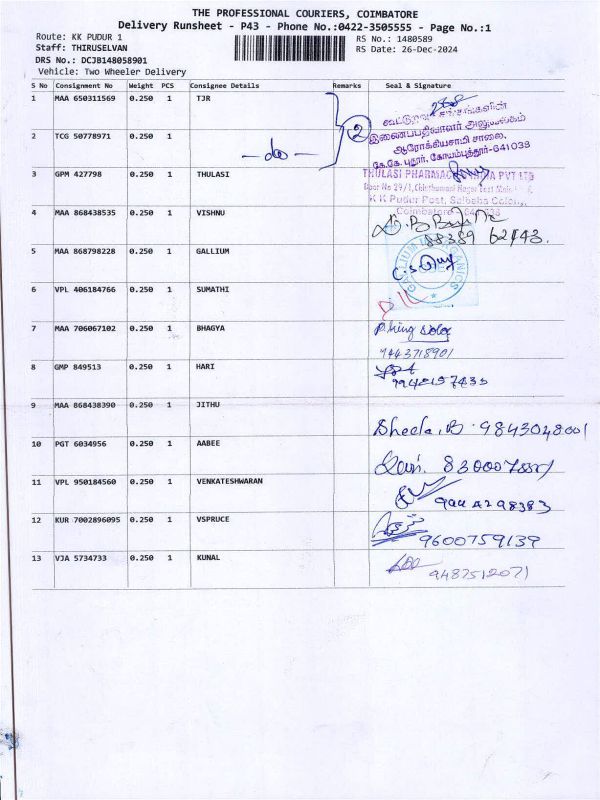 THE PROFESSIONAL COURIERS, COIMBATORE
Delivery Runsheet - P43 - Phone No.:0422-3505555 - Page No.:1
Route: KK PUDUR 1
RS No.: 1480589
Staff: THIRUSELVAN
RS Date: 26-Dec-2024
DRS No.: DCJB148058901
Vehicle: Two Wheeler Delivery
S No Consignment No Weight PCS Consignee Details Remarks Seal & Signature
1 MAA 650311569 0.250 1 TJR
கூட்டுறவு சங்கங்களின்
இணைப்பதிவாளர் அலுவலகம்
2 TCG 50778971 0.250 1 -do- 2
ஆரோக்கியசாமி சாலை,
கே.கே. புதூர், கோயம்புத்தூர்-641038
3 GPM 427798 0.250 1 THULASI
THULASI PHARMAC INDIA PVT LTD
Door No 29/1, Chinthamani Nagar East Main
K K Pudur Post, Saibaba Colony,
Coimbatore - 641038
4 MAA 868438535 0.250 1 VISHNU
88389 62443.
5 MAA 868798228 0.250 1 GALLIUM
6 VPL 406184766 0.250 1 SUMATHI
7 MAA 706067102 0.250 1 BHAGYA
7443718901
8 GMP 849513 0.250 1 HARI
9 MAA 868438390 0.250 1 JITHU
Sheela.B. 9843048001
10 PGT 6034956 0.250 1 AABEE
11 VPL 950184560 0.250 1 VENKATESHWARAN
12 KUR 7002896095 0.250 1 VSPRUCE
9600759139
13 VJA 5734733 0.250 1 KUNAL
9487512071